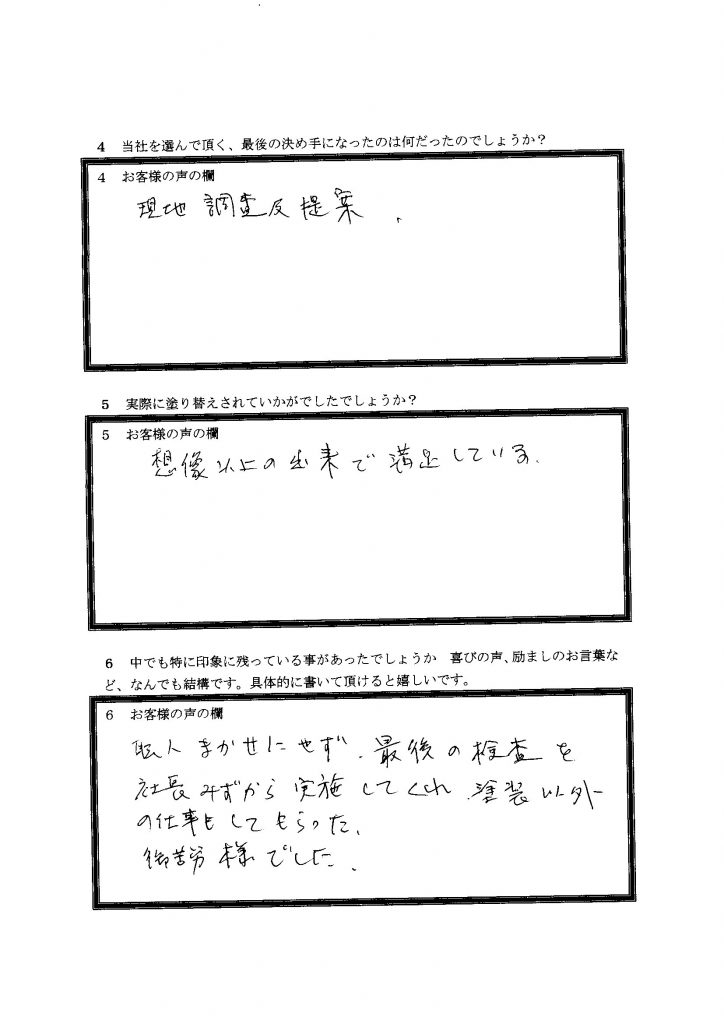 4 当社を選んで頂く、最後の決め手になったのは何だったのでしょうか？
4 お客様の声の欄
現地調査及提案．
5 実際に塗り替えされていかがでしたでしょうか？
5 お客様の声の欄
想像以上の出来で満足している．
6 中でも特に印象に残っている事があったでしょうか　喜びの声、励ましのお言葉な
ど、なんでも結構です。具体的に書いて頂けると嬉しいです。
6 お客様の声の欄
職人まかせにせず．最後の検査を
社長みずから実施してくれ．塗装以外
の仕事もしてもらった．
御苦労様でした．